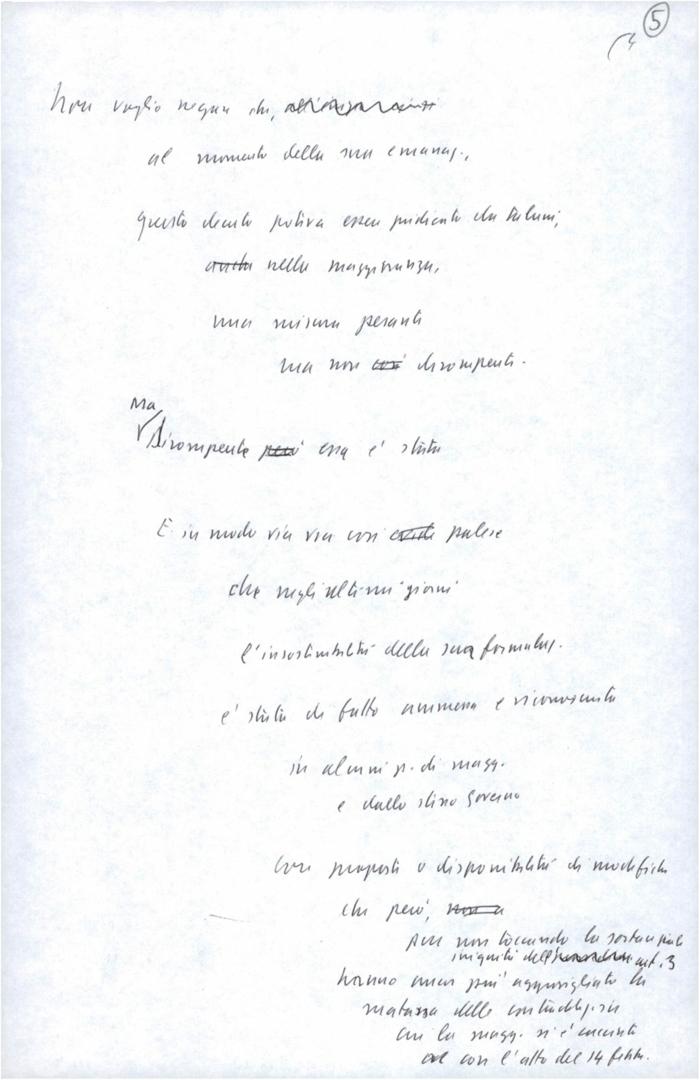 5
Non voglio negare che,
al momento della sua emanaz.,
questo decreto poteva essere giudicato da taluni,
anche nella maggioranza,
una misura pesante
ma non così dirompente.
Ma
Dirompente però essa è stata
E in modo via via così palese
che negli ultimi giorni
l'insostenibilità della sua formulaz.
è stata di fatto ammessa e riconosciuta
in alcuni p. di magg.
e dallo stesso Governo
con proposte o disponibilità di modifiche
che però, non
pur non toccando la sostanziale
iniquità dell' art. 3
hanno ancor più aggrovigliato la
matassa delle contraddizioni
cui la magg. si è
con l'atto del 14 febbr.